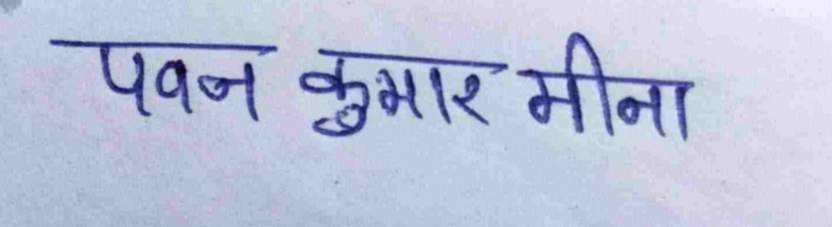 पवन कुमार मीना